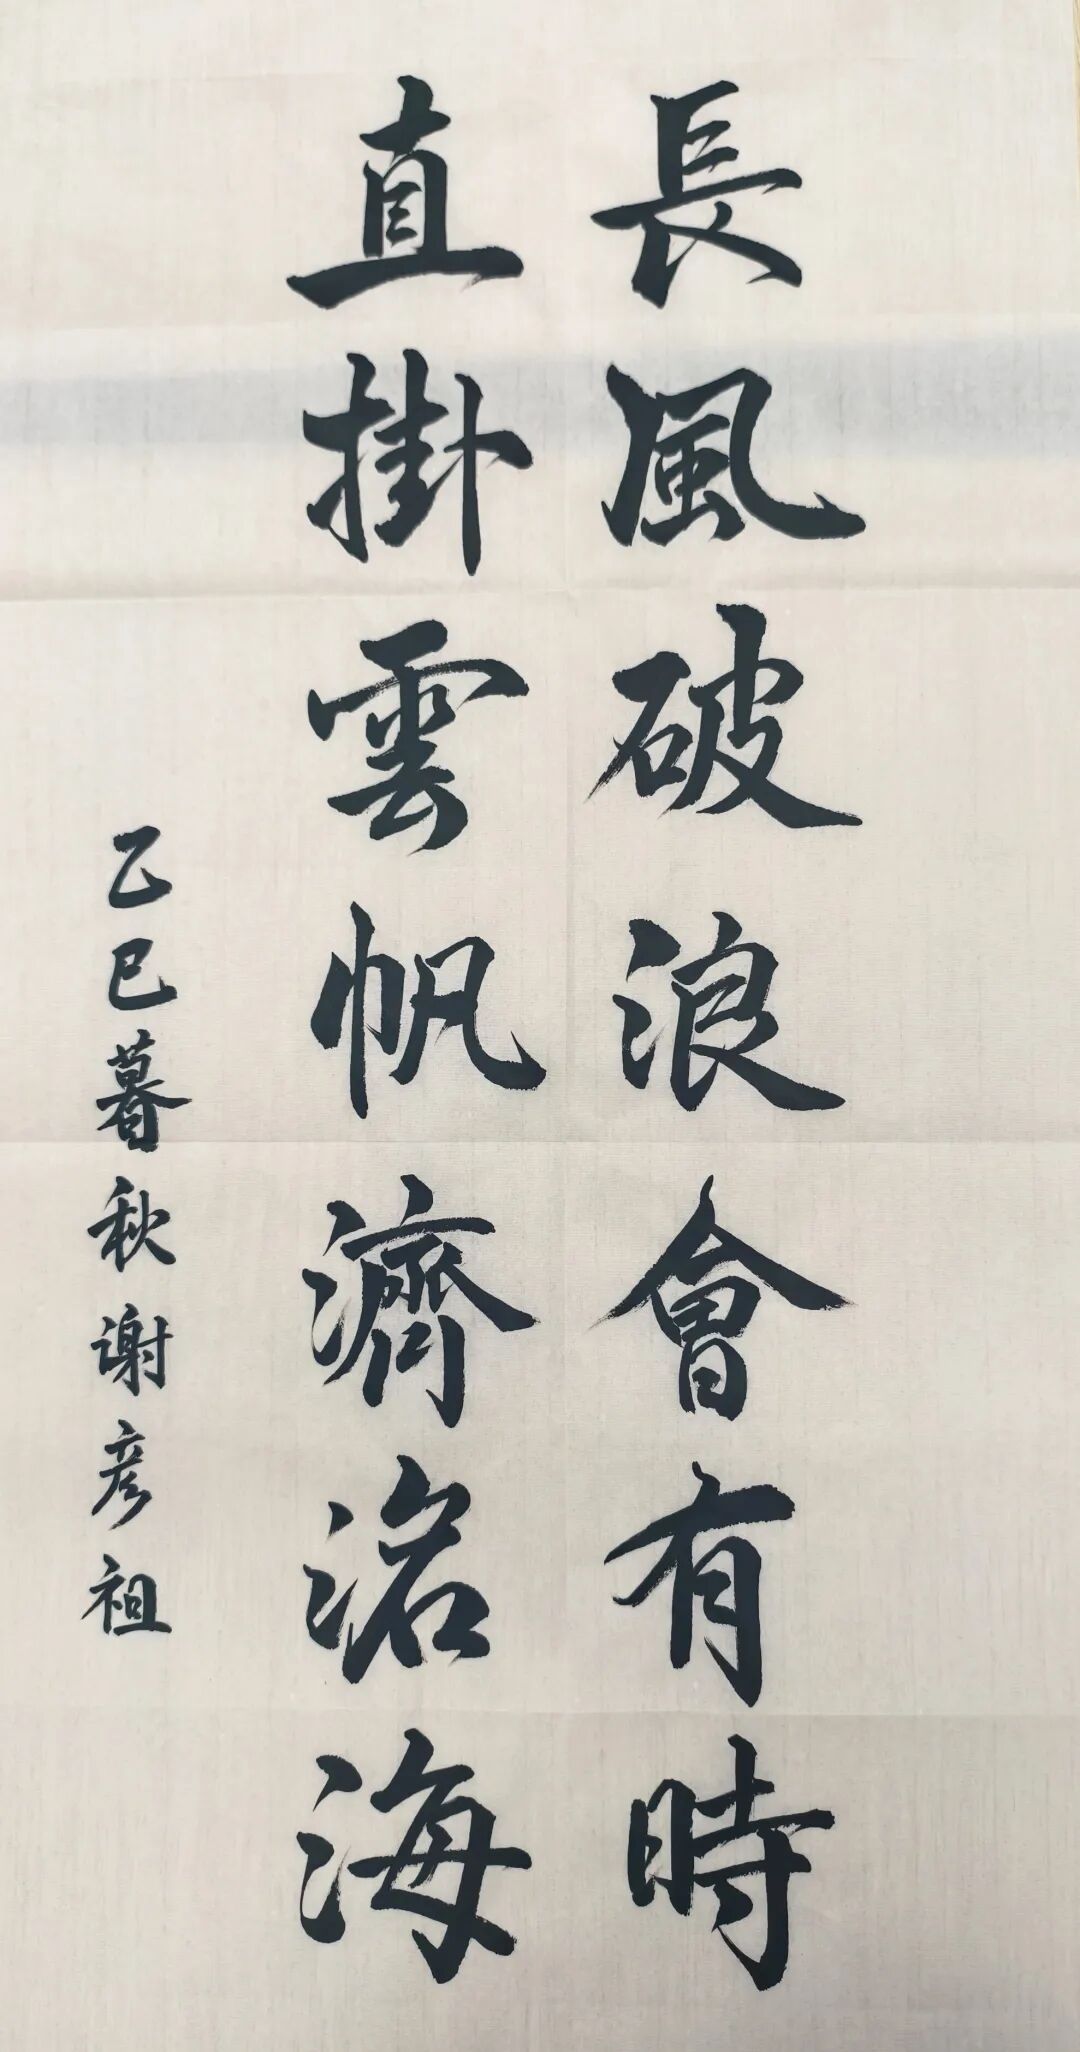 長風破浪會有時
直掛雲帆濟滄海
乙巳暮秋谢彦祖